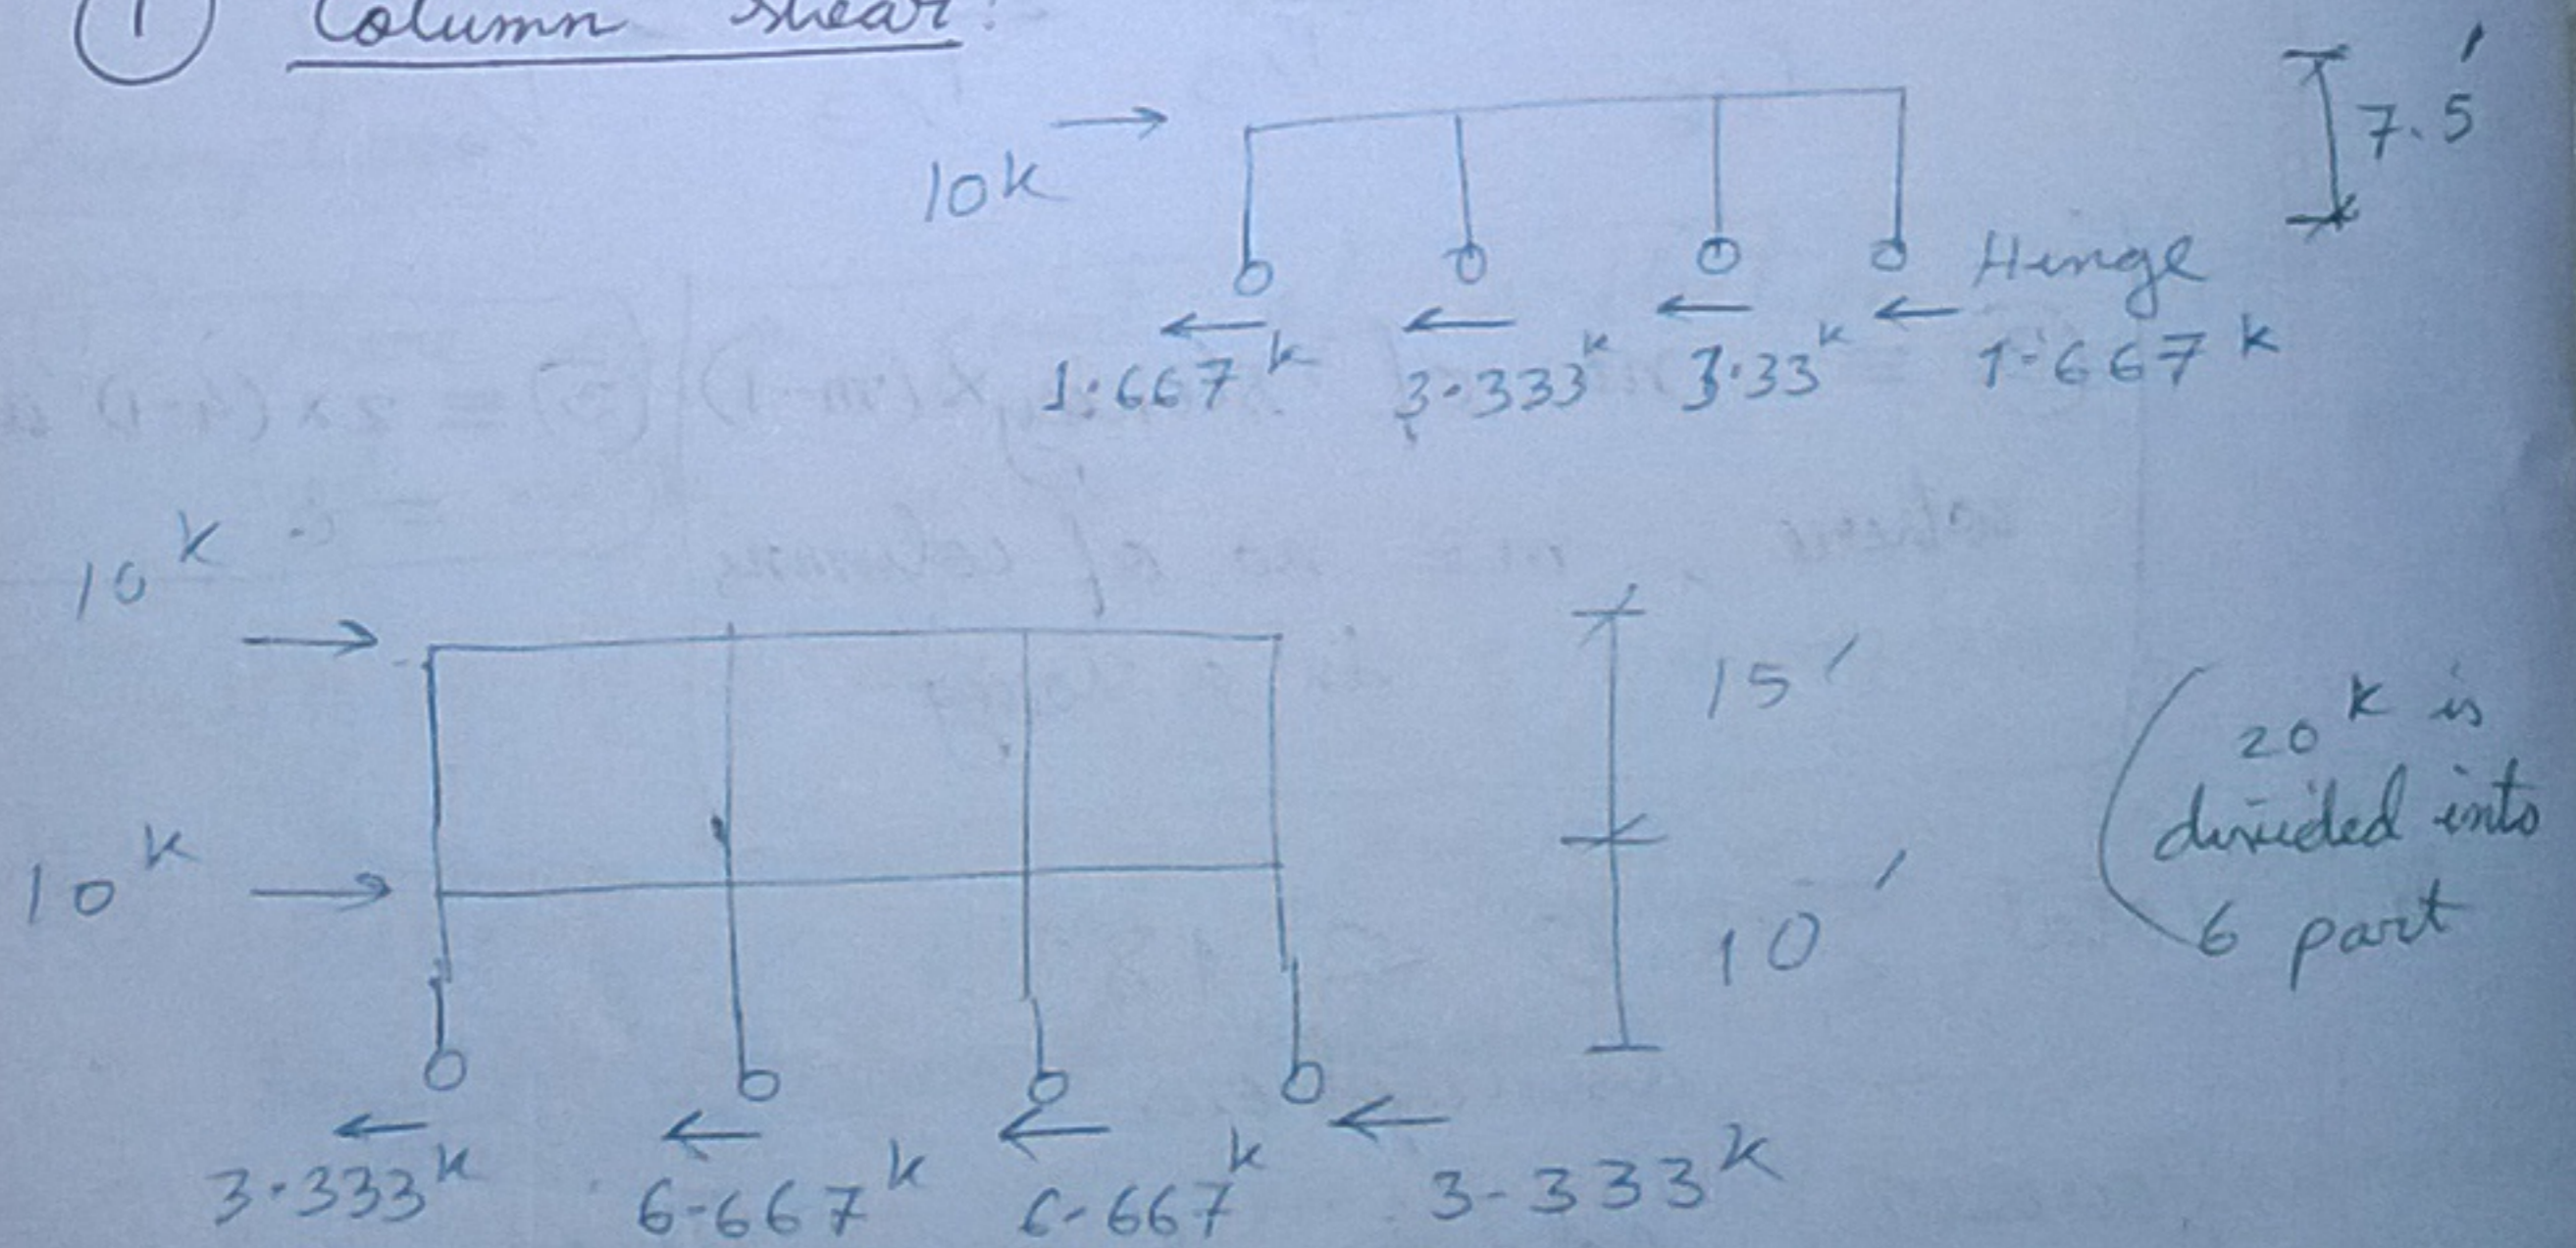 1 Column shear:
10k
7.5'
Hinge
1.667k 3.333k 3.33k 1.667k
10k
15'
20k is
divided into
6 part
10k
10'
3.333k 6.667k 6.667k 3.333k